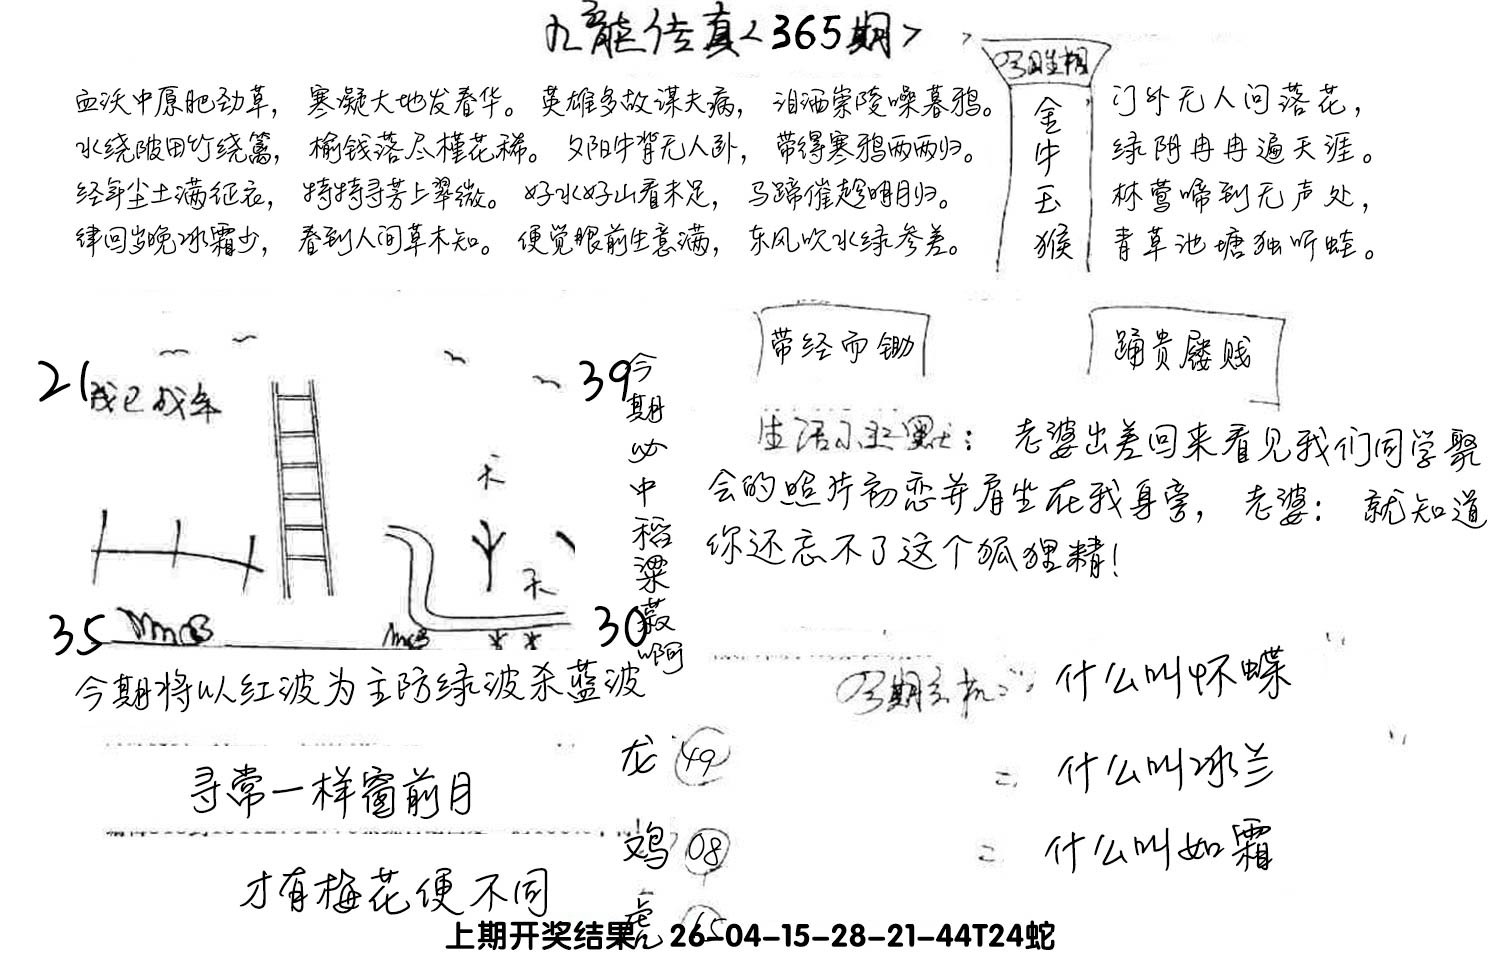 九龙传真<365期>
血沃中原肥劲草，寒凝大地发春华。英雄多故谋夫病，泪洒崇陵噪暮鸦。
水绕陂田竹绕篱，榆钱落尽槿花稀。夕阳牛背无人卧，带得寒鸦两两归。
经年尘土满征衣，特特寻芳上翠微。好水好山看未足，马蹄催趁明月归。
律回岁晚冰霜少，春到人间草木知。便觉眼前生意满，东风吹水绿参差。
今期生相
金牛玉猴
门外无人问落花，
绿阴冉冉遍天涯。
林莺啼到无声处，
青草池塘独听蛙。
21
我已成年
39
天
天
35
30
今期必中稻粱菽啊
今期将以红波为主防绿波杀蓝波
带经而锄
踊贵屦贱
生活幽默：老婆出差回来看见我们同学聚
会的照片初恋并肩坐在我身旁，老婆：就知道
你还忘不了这个狐狸精！
今期玄机：什么叫怀蝶
什么叫冰兰
什么叫如霜
寻常一样窗前月
才有梅花便不同
龙 49
鸡 08
虎
上期开奖结果 26-04-15-28-21-44T24蛇